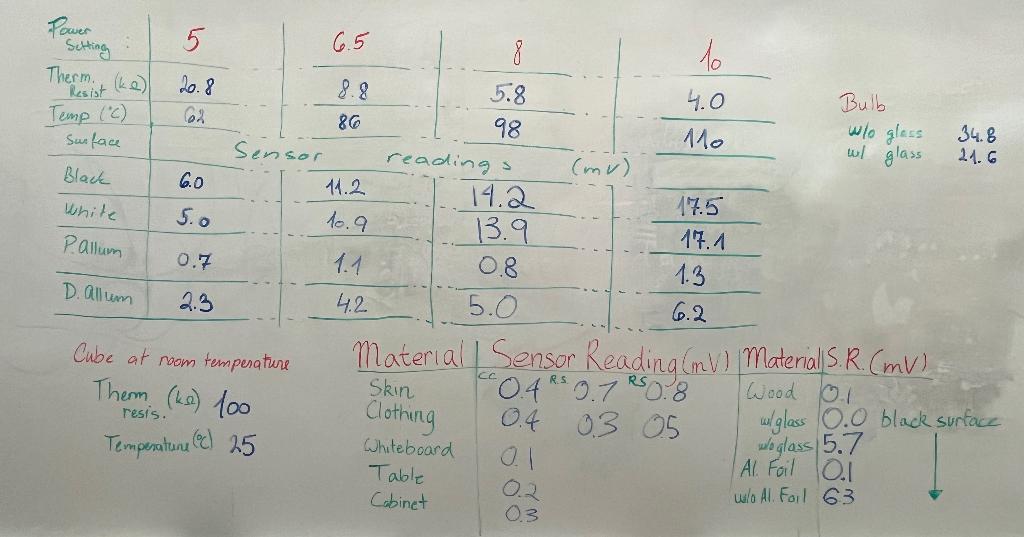 Power Setting : 5 6.5 8 10
Therm. Resist (kΩ) 20.8 8.8 5.8 4.0
Temp (°C) 62 86 98 110
Surface Sensor readings (mV)
Black 6.0 11.2 14.2 17.5
White 5.0 10.9 13.9 17.1
P. Allum 0.7 1.1 0.8 1.3
D. allum 2.3 4.2 5.0 6.2
Bulb
w/o glass 34.8
w/ glass 21.6
Cube at room temperature
Therm resis. (kΩ) 100
Temperature (°C) 25
Material Sensor Reading (mV)
CC RS RS
Skin 0.4 0.7 0.8
Clothing 0.4 0.3 0.5
Whiteboard 0.1
Table 0.2
Cabinet 0.3
Material S.R. (mV)
Wood 0.1
w/glass 0.0 black surface
w/o glass 5.7
Al. Foil 0.1
w/o Al. Foil 6.3